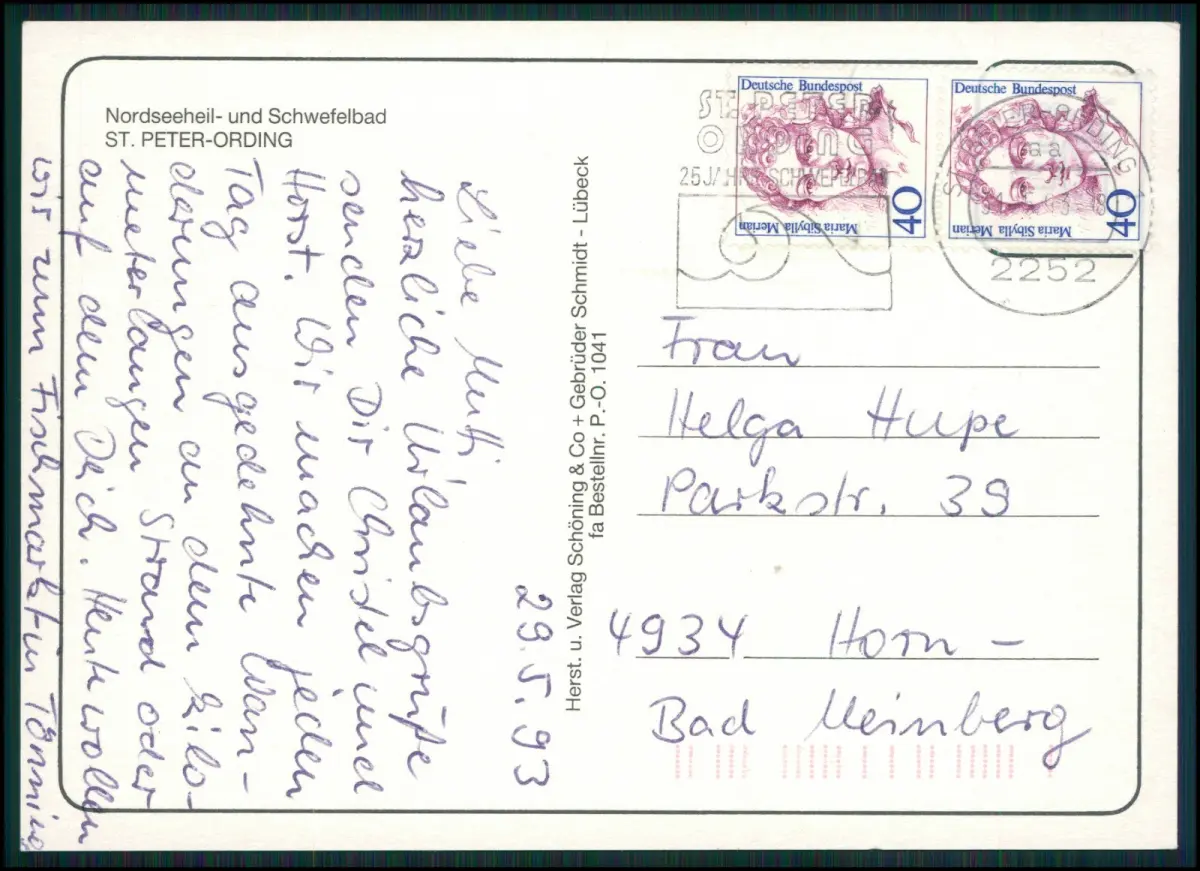 Nordseeheil- und Schwefelbad
ST. PETER-ORDING
29.5.93
Liebe Mutti
herzliche Urlaubsgrüße
senden Dir Christel und
Horst. Wir machen jeden
Tag ausgedehnte Wan-
derungen an dem kilo-
meterlangen Strand oder
auf dem Deich. Heute wollen
wir zum Fischmarkt in Tönning
Herst. u. Verlag Schöning & Co + Gebrüder Schmidt - Lübeck
fa Bestellnr. P.-O. 1041
ST. PETER-
ORDING
25 JAHRE SCHWEFELBAD
Deutsche Bundespost
40
Maria Sibylla Merian
Deutsche Bundespost
40
Maria Sibylla Merian
ST. PETER-ORDING
aa
2252
Frau
Helga Hupe
Parkstr. 39
4934 Horn -
Bad Meinberg